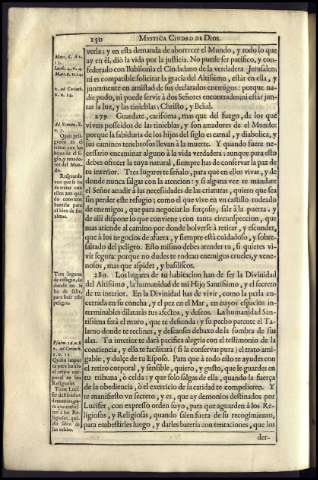 230 MYSTICA CIUDAD DE DIOS.
verla; y en esta demanda de aborrecer el Mundo, y todo lo que
ay en él, dió la vida por la justicia. No puede ser pacifico, y con-
federado con Babilonia el Ciudadano de la verdadera Jerusalem;
ni es compatible solicitar la gracia del Altissimo, y estar en ella, y
juntamente en amistad de sus declarados enemigos: porque na-
die pudo, ni puede servir à dos Señores encontrados; ni estar jun-
tas la luz, y las tinieblas; Christo, y Belial.
279. Guardate, carissima, mas que del fuego, de los que
viven posseidos de las tinieblas, y son amadores de el Mundo:
porque la sabiduria de los hijos del siglo es carnal, y diabolica, y
sus caminos tenebrosos llevan à la muerte. Y quando fuere ne-
cessario encaminar alguno à la vida verdadera; aunque para esto
debes ofrecer la tuya natural, siempre has de conservar la paz de
tu interior. Tres lugares te señalo, para que en ellos vivas, y de
donde nunca salgas con la atencion: y si alguna vez te mandare
el Señor acudir à las necessidades de las criaturas, quiero que sea
sin perder este refugio; como el que vive en un castillo rodeado
de enemigos, que para negociar lo forçoso, sale à la puerta, y
de allí dispone lo que conviene con tanta circunspeccion, que
mas atiende al camino por donde bolverse à retirar, y esconder,
que à los negocios de afuera, y siempre està cuidadoso, y sobre-
saltado del peligro. Esto mismo debes atender tu, si quieres vi-
vir segura: porque no dudes te rodean enemigos crueles, y vene-
nosos, mas que aspides, y basiliscos.
280. Los lugares de tu habitacion han de ser la Divinidad
del Altissimo, la humanidad de mi Hijo Santissimo, y el secreto
de tu interior. En la Divinidad has de vivir, como la perla en-
cerrada en su concha, y el pez en el Mar, en cuyos espacios in-
terminables dilataràs tus afectos, y deseos. La humanidad San-
tissima serà el muro, que te defienda; y su pecho patente el Ta-
lamo donde te reclines, y descanses debaxo de la sombra de sus
alas. Tu interior te darà pacifica alegria con el testimonio de la
conciencia, y ella te facilitarà (si la conservas pura) el trato ami-
gable, y dulce de tu Esposo. Para que à todo esto te ayudes con
el retiro corporal, y sensible, quiero, y gusto, que le guardes en
tu tribuna, ò celda: y que solo salgas de ella, quando la fuerça
de la obediencia, ò el exercicio de la caridad te compeliere. Y
te manifiesto un secreto, y es, que ay demonios destinados por
Lucifer, con expresso orden suyo, para que aguarden à los Re-
ligiosos, y Religiosas, quando salen fuera de su recogimiento,
para embestirles luego, y darles batería con tentaciones, que los
der-